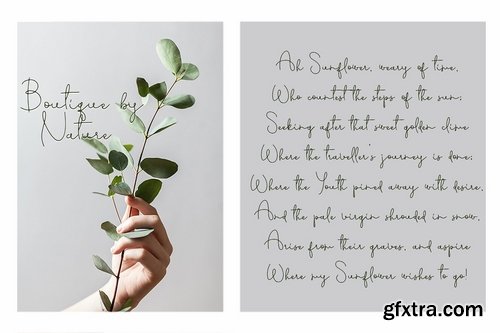 Boutique by
Nature
Ah Sunflower, weary of time,
Who countest the steps of the sun;
Seeking after that sweet golden clime
Where the traveller's journey is done;
Where the Youth pined away with desire,
And the pale virgin shrouded in snow,
Arise from their graves, and aspire
Where my Sunflower wishes to go!
gfxtra.com